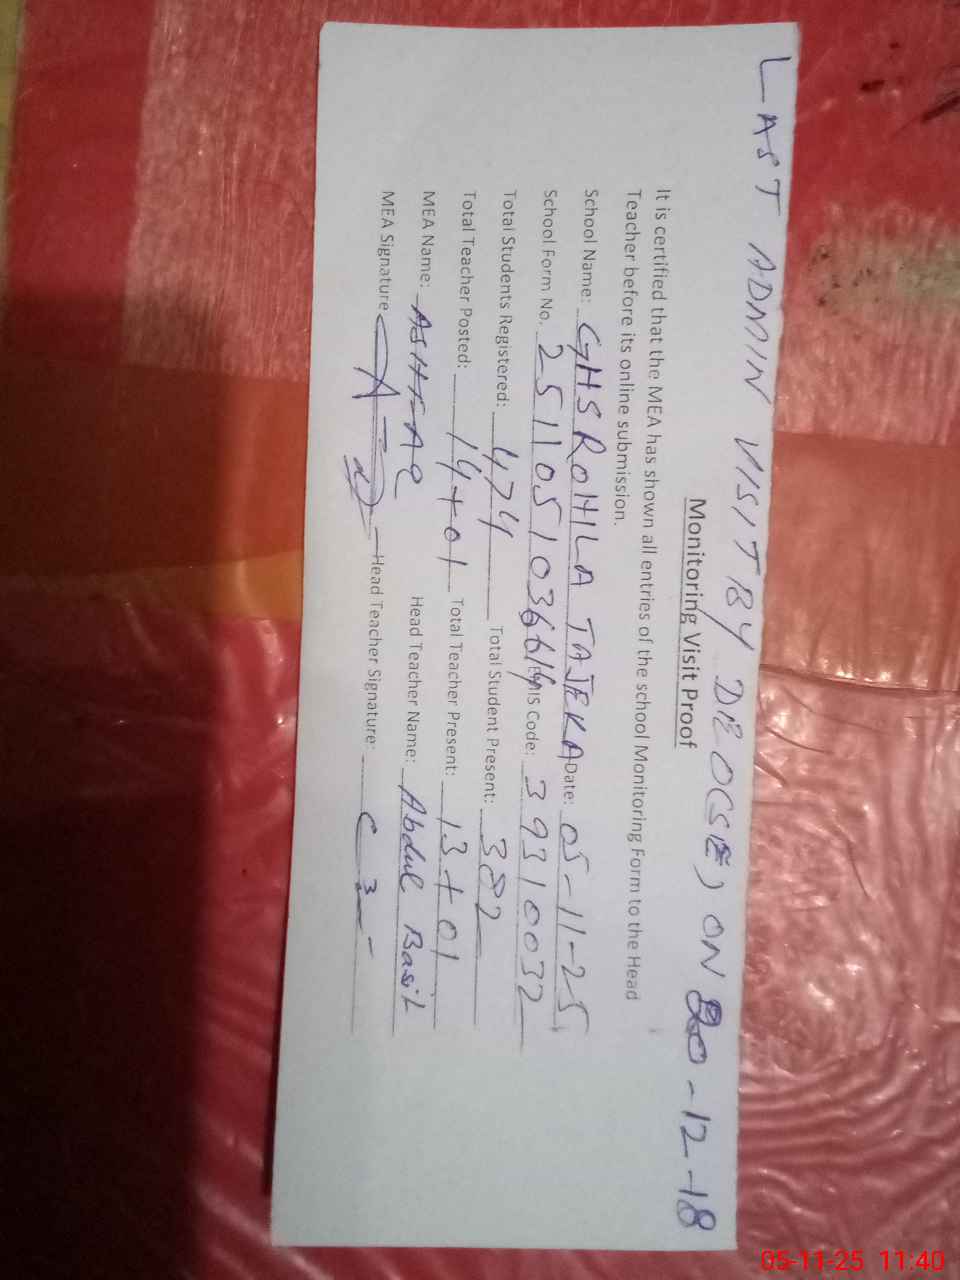 LAST ADMIN VISIT BY DEO(SE) ON 20-12-18
Monitoring Visit Proof
It is certified that the MEA has shown all entries of the school Monitoring Form to the Head
Teacher before its online submission.
School Name: GHS ROHILA TAJEKA Date: 05-11-25
School Form No. 2511051036614 EMIS Code: 39310032
Total Students Registered: 474 Total Student Present: 382
Total Teacher Posted: 14+01 Total Teacher Present: 13+01
MEA Name: ASHFAQ Head Teacher Name: Abdul Basit
MEA Signature Head Teacher Signature:
05-11-25 11:40